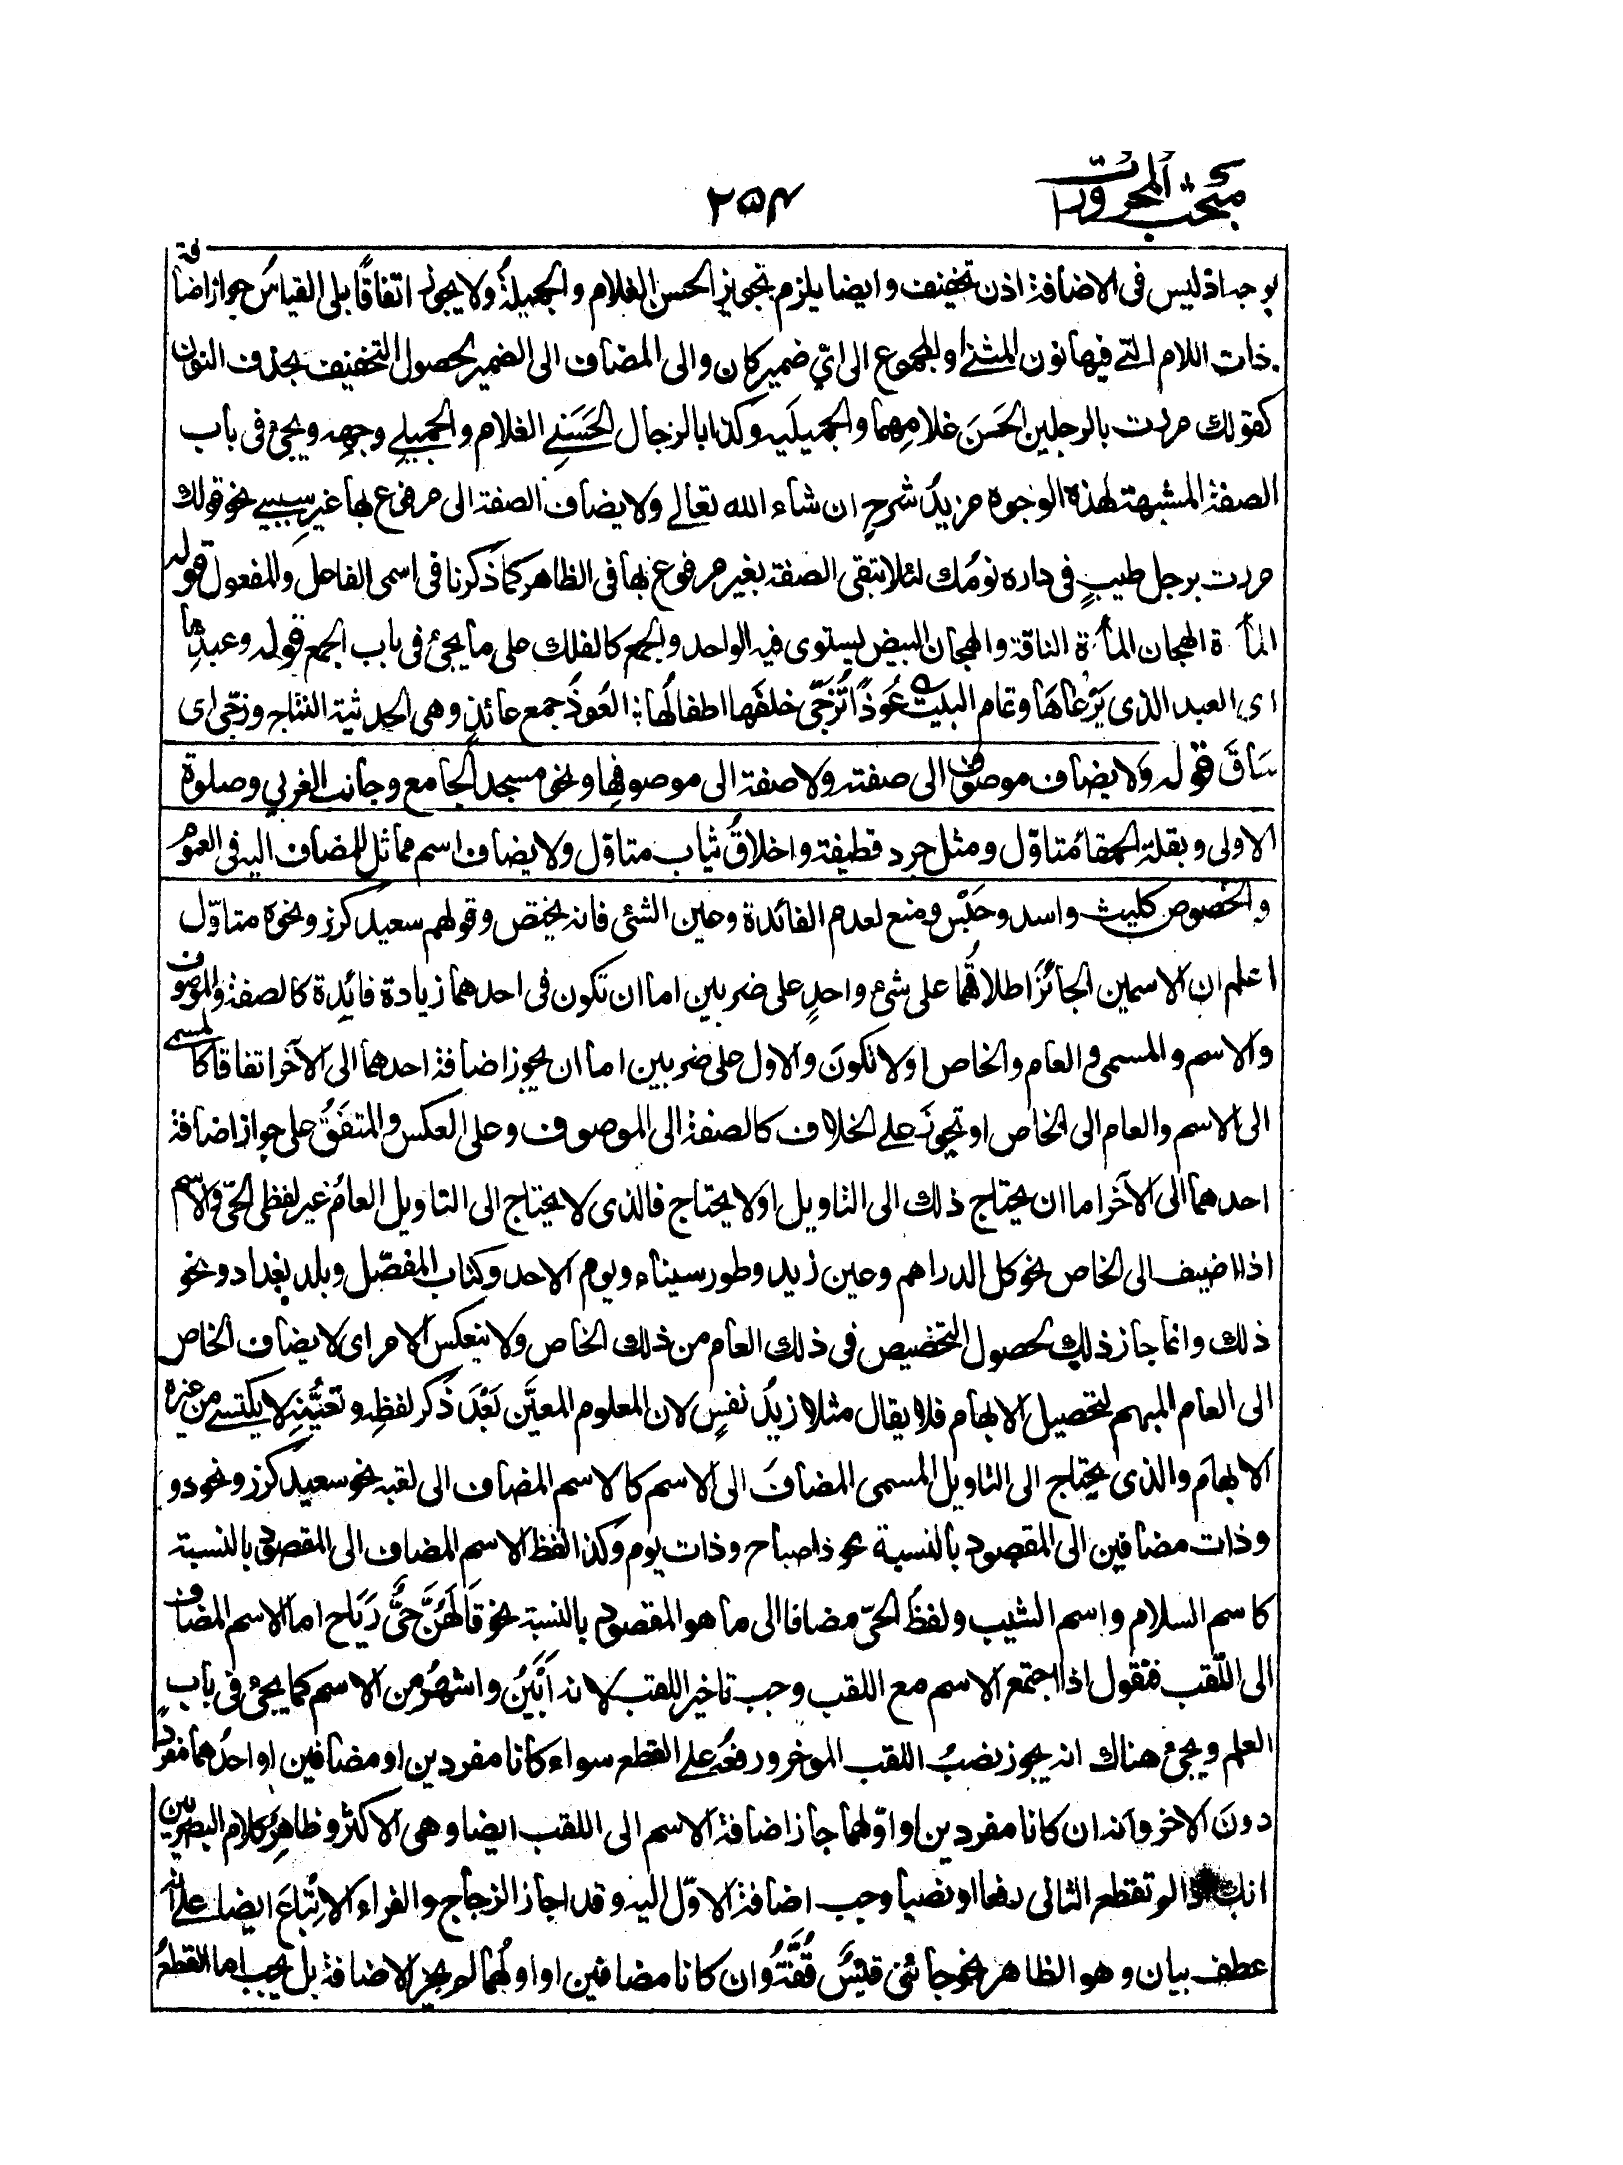 مبحث المجرورات
٢٥٤
بوجه اذ ليس فى الاضافة اذن تخفيف وايضا يلزم تجويز الحسن الغلام والجميلة ولا يجوز اتفاقًا بلى القياسُ جواز اضافة
ذات اللام التے فيها نون المثنے او المجموع الى ايّ ضمير كان والى المضاف الى الضمير لحصول التخفيف بحذف النون
كقولك مررت بالرجلين الحَسَنَ غلامِهما والجميليه وكذا بالرجال الحَسَنِے الغلام والجميلے وجهِه ويجئ فى باب
الصفة المشبهة لهذه الوجوه مزيدُ شرحٍ ان شاء الله تعالے ولا يضاف الصفة الى مرفوع بها غيرِ سببيے نحو قولك
مررت برجل طيبٍ فى داره نومُك لئلا تبقى الصفة بغير مرفوع بها فى الظاهر كما ذكرنا فى اسمى الفاعل والمفعول قوله
المأة الهجان المأة الناقة والهجان البيض يستوى فيه الواحد والجمع كالفلك على ما يجئ فى باب الجمع قوله وعبدِها
اى العبد الذى يَرْعاهَا وتمام البيت عُوَذًا تُزَجّى خلفَها اطفالُها العُوذُ جمع عائذٍ وهى الحديثة النتاج وزجّى اى
سَاقَ قوله ولا يضاف موصوف الى صفته ولا صفة الى موصوفها ونحو مسجد الجامع وجانب الغربي وصلوة
الاولى وبقلة الحمقاءُ متاوّل ومثل جرد قطيفة واخلاقُ ثياب متاوّل ولا يضاف اسم مماثل للمضاف اليه فى العموم
والخصوص كليث واسد وحَبْس ومنع لعدم الفائدة وعين الشئى فانه يختص وقولهم سعيد كرز ونحوه متاوّل
اعلم ان الاسمين الجائزَ اطلاقُهما على شئ واحدٍ على ضربين اما ان تكون فى احدهما زيادة فائدة كالصفة والموصوف
والاسم والمسمى والعام والخاص اولا تكونَ والاول على ضربين اما ان يجوز اضافة احدهما الى الآخر اتفاقا كالمسمے
الى الاسم والعام الى الخاص او تجوزَ علے الخلاف كالصفة الى الموصوف وعلى العكس والمتفَقُ على جواز اضافة
احدهما الى الآخر اما ان يحتاج ذلك الى التاويل اولا يحتاج فالذى لا يحتاج الى التاويل العامُ غير لفظى الحىّ والاسم
اذا اضيف الى الخاص نحو كل الدراهم وعين زيد وطور سيناء ويوم الاحد وكتاب المفصّل وبلد بغداد ونحو
ذلك وانما جاز ذلك لحصول التخصيص فى ذلك العام من ذلك الخاص ولا ينعكس الامر اى لا يضاف الخاص
الى العام المبهم لتحصيل الابهام فلا يقال مثلا زيدُ نفسٍ لان المعلوم المعيَّن بَعْدَ ذكر لفظِه وتعيُّنِه لا يكتسے من غيره
الابهامَ والذى يحتاج الى التاويل المسمى المضافَ الى الاسم كالاسم المضاف الى لقبه نحو سعيد كرز ونحو ذو
وذات مضافين الى المقصود بالنسبة نحو ذا صباح وذات يوم وكذا لفظ الاسم المضاف الى المقصود بالنسبة
كاسم السلام واسم الشيب ولفظُ الحىّ مضافا الى ما هو المقصود بالنسبة نحو قَالَهُنَّ حىُّ رَيَاح اما الاسم المضاف
الى اللّقب فنقول اذا اجتمع الاسم مع اللقب وجب تاخير اللقب لانه اَبْيَنُ واشهرُ من الاسم كما يجئ فى باب
العلم ويجئ هناك انه يجوز نصبُ اللقب الموخر ورفعُه علے القطع سواء كانا مفردين او مضافين او احدُهما مفردٌ
دونَ الاخر وانه ان كانا مفردين او اوّلهما جاز اضافة الاسم الى اللقب ايضا وهى الاكثر وظاهِرُ كلام البصريين
انك اذا لو تقطع الثانى رفعا او نصبا وجب اضافة الاوّل اليه وقد اجاز الزجاج والفراء الاِتْباعَ ايضا علے انه
عطف بيان وهو الظاهر نحو جائنى قيسٌ قُفَّةُ وان كانا مضافين او اولُهما لم يجز الاضافة بل يجب اما القطعُ